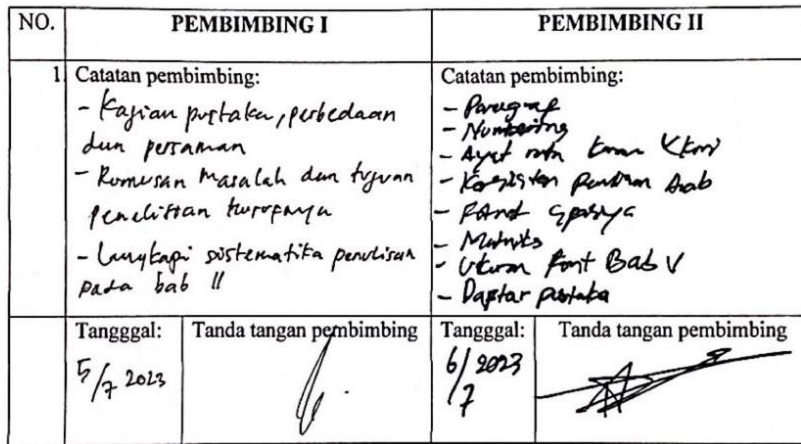 NO.
PEMBIMBING I
PEMBIMBING II
1
Catatan pembimbing:
- Kajian pustaka, perbedaan
dan persamaan
- Rumusan masalah dan tujuan
penelitian
- Lengkapi sistematika penulisan
pada bab II
Catatan pembimbing:
- Paragraf
- Numbering
- Ayat rata kanan kiri
- Konsisten penulisan Arab
- Font
- Matriks
- Ukuran font Bab V
- Daftar pustaka
Tangggal:
Tanda tangan pembimbing
Tangggal:
Tanda tangan pembimbing
5/7 2023
6/7 2023